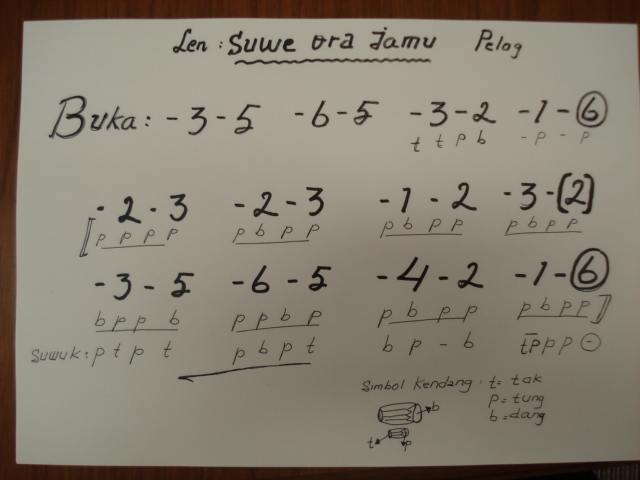 Len : Suwe ora Jamu Pelog
Buka: - 3 - 5 - 6 - 5 - 3 - 2 - 1 - (6)
t t p b - p - p
- 2 - 3 - 2 - 3 - 1 - 2 - 3 - (2)
[ p p p p p b p p p b p p p b p p
- 3 - 5 - 6 - 5 - 4 - 2 - 1 - (6)
b p p b p p b p p b p p p b p p ]
Suwuk: p t p t p b p t b p - b tp p p (-)
Simbol Kendang : t = tak
p = tung
b = dang
b
t p